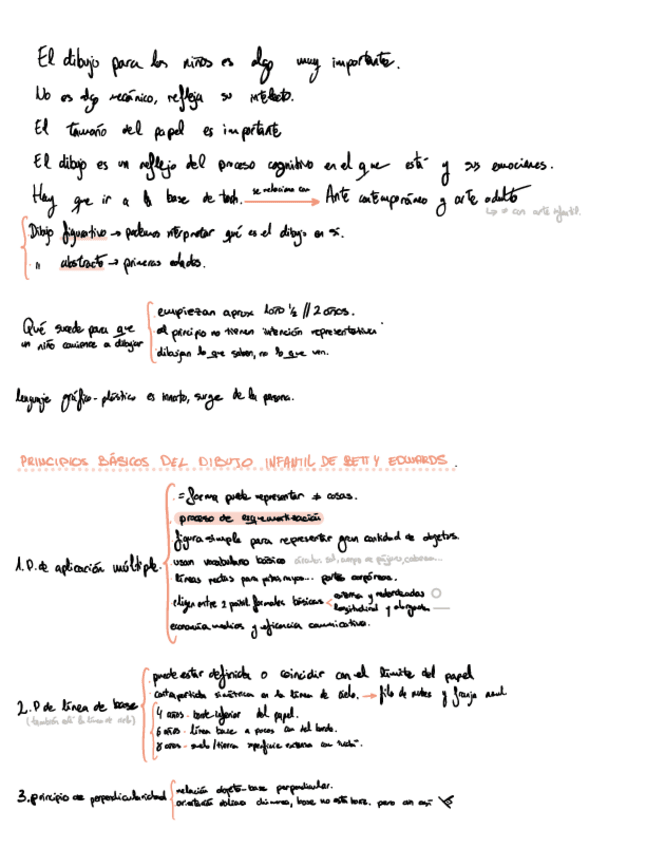 El dibujo para los niños es algo muy importante.
No es algo mecánico, refleja su intelecto.
El tamaño del papel es importante
El dibujo es un reflejo del proceso cognitivo en el que está y sus emociones.
Hay que ir a la base de se relaciona con Arte contemporáneo y arte adulto
con arte infantil.
Dibujo figurativo → podemos interpretar qué es el dibujo en sí.
" abstracto → primeras edades.
empiezan aprox 1 año ½ // 2 años.
Qué sucede para que
al principio no tienen intención representativa
un niño comience a dibujar
dibujan lo que saben, no lo que ven.
lenguaje gráfico-plástico es innato, surge de la persona.
PRINCIPIOS BÁSICOS DEL DIBUJO INFANTIL DE BETTY EDWARDS.
= forma puede representar ≠ cosas.
proceso de esquematización
figura simple para representar gran cantidad de objetos.
1. P. de aplicación múltiple.
usan vocabulario básico círculo: sol, cabeza...
líneas rectas para partes corpóreas.
eligen entre 2 formales básicas
longitudinal y alargada
economía medios y eficiencia comunicativa.
puede estar definida o coincidir con el límite del papel
contrapartida simétrica en la línea de cielo. → filo de nubes y franja azul
2. P de línea de base
(también está la línea de cielo)
4 años - borde inferior del papel.
6 años - línea base a pocos cm del borde.
8 años - suelo/tierra superficie extensa
3. principio de perpendicularidad
relación objeto-base perpendicular.